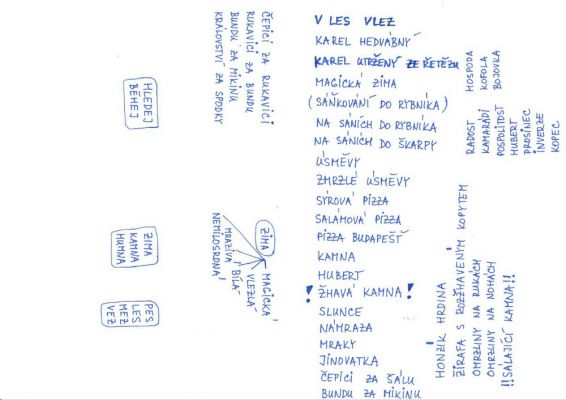 V LES VLEZ
KAREL HEDVÁBNÝ
KAREL UTRŽENÝ ZE ŘETĚZU
MAGICKÁ ZIMA
(SÁŇKOVÁNÍ DO RYBNÍKA)
NA SÁNÍCH DO RYBNÍKA
NA SÁNÍCH DO ŠKARPY
ÚSMĚVY
ZMRZLÉ ÚSMĚVY
SÝROVÁ PIZZA
SALÁMOVÁ PIZZA
PIZZA BUDAPEŠŤ
KAMNA
HUBERT
! ŽHAVÁ KAMNA !
SLUNCE
NÁMRAZA
MRAKY
JINOVATKA
ČEPICI ZA ŠÁLU
BUNDU ZA MIKINU
ČEPICI ZA RUKAVICI
RUKAVICI ZA BUNDU
BUNDU ZA MIKINU
KRÁLOVSTVÍ ZA SPODKY
HLEDEJ
BĚHEJ
ZIMA
MAGICKÁ
VLEZLÁ
BÍLÁ
MRAZIVÁ
NEMILOSRDNÁ
ZIMA
KAMNA
HUMNA
PES
LES
MEZ
VEZ
HOSPODA
KOFOLA
BOJOVKA
RADOST
KAMARÁDI
POSPOLITOST
HUBERT
PROSINEC
INVERZE
KOPEC
HONZÍK HRDINA
ŽIRAFA S ROZŽHAVENÝM KOPYTEM
OMRZLINY NA RUKÁCH
OMRZLINY NA NOHÁCH
!!SÁLAJÍCÍ KAMNA!!